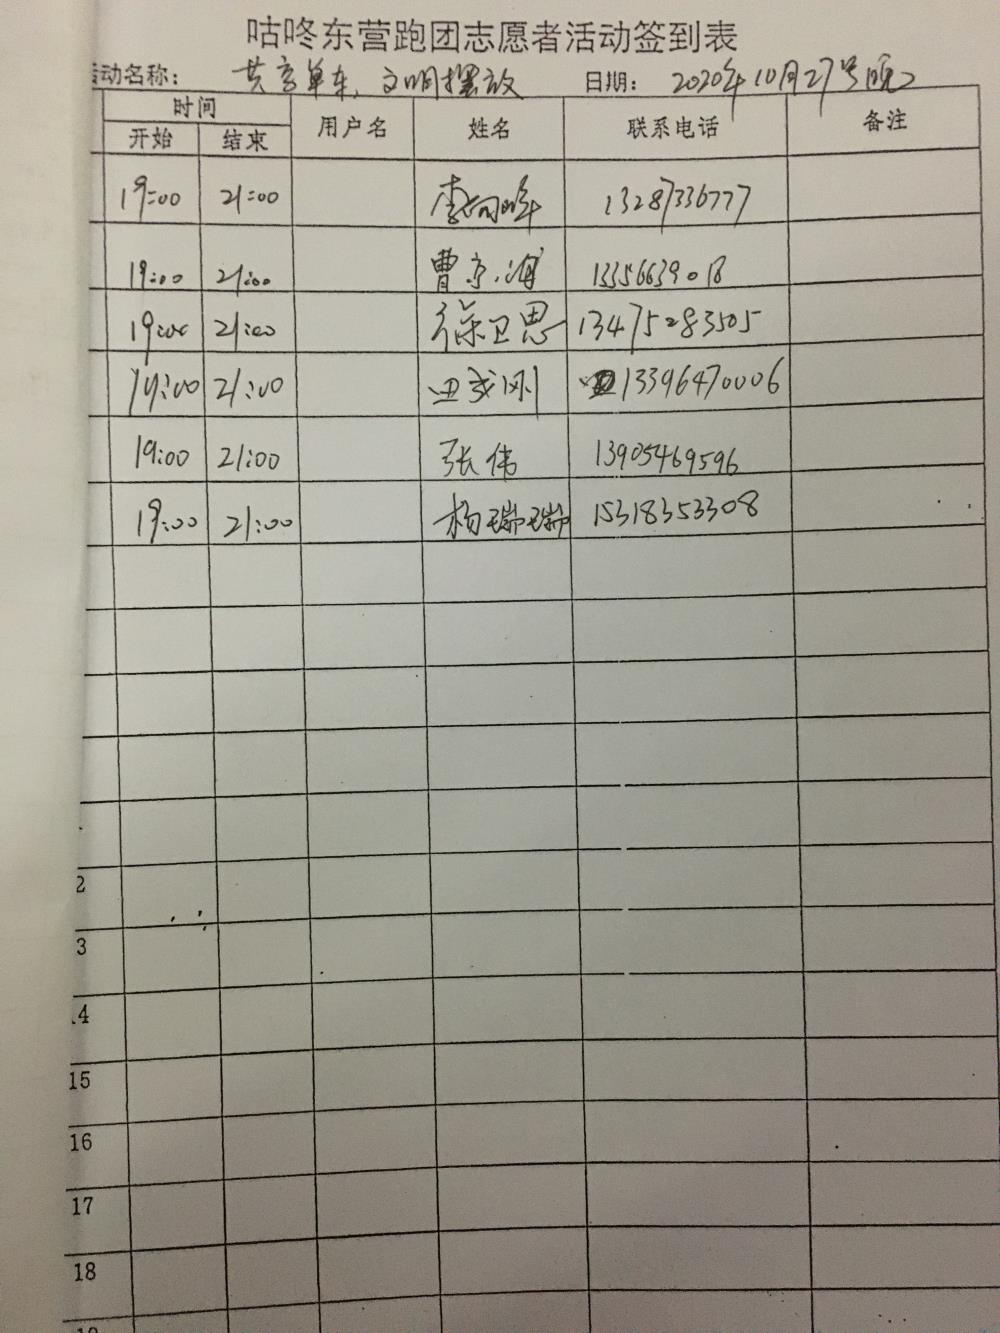 咕咚东营跑团志愿者活动签到表
活动名称： 共享单车，文明摆放 日期： 2020年10月27号晚
时间 用户名 姓名 联系电话 备注
开始 结束
19:00 21:00 李向峰 13287336777
19:00 21:00 曹京海 13356639018
19:00 21:00 徐卫思 13475283505
19:00 21:00 刚 13396470006
19:00 21:00 张伟 13905469596
19:00 21:00 杨瑞瑞 15318353308
2
3
14
15
16
17
18